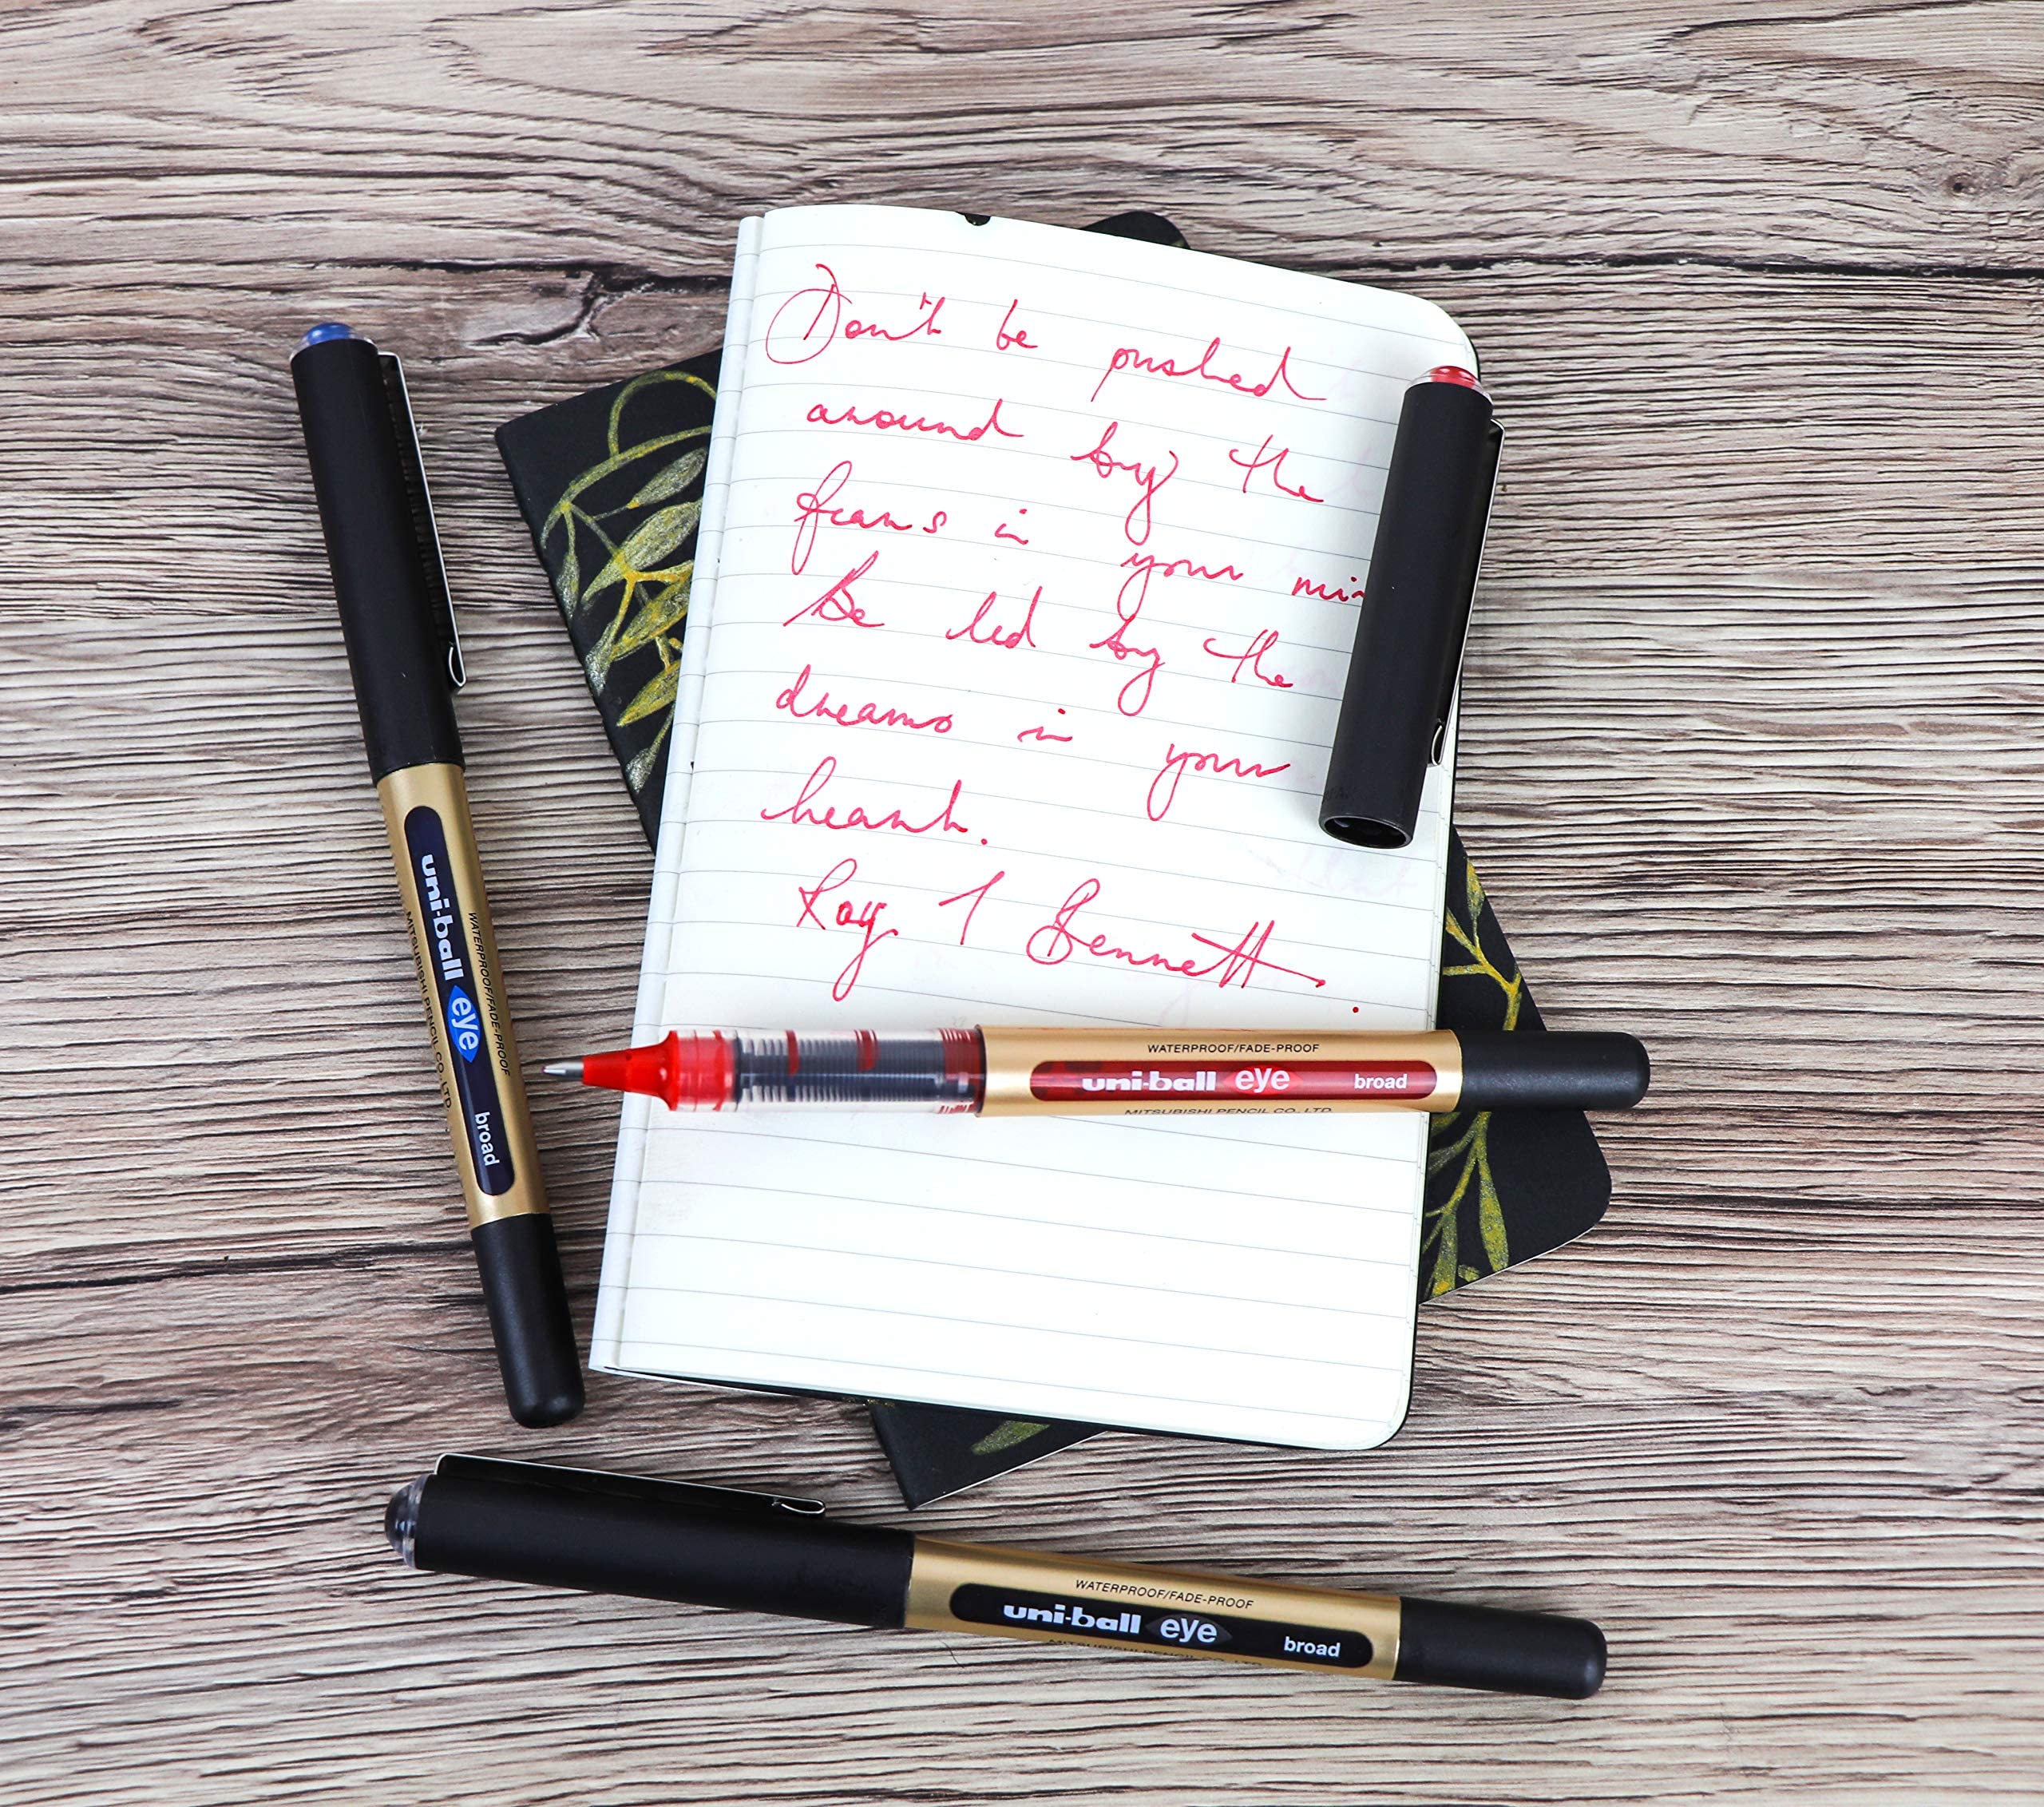 Don't be pushed
around by the
fears in your min
Be led by the
dreams in your
heart.
Roy T Bennett.
WATERPROOF/FADE-PROOF
uni-ball eye broad
MITSUBISHI PENCIL CO., LTD.
WATERPROOF/FADE-PROOF
uni-ball eye broad
MITSUBISHI PENCIL CO. LTD.
WATERPROOF/FADE-PROOF
uni-ball eye broad
MITSUBISHI PENCIL CO., LTD.